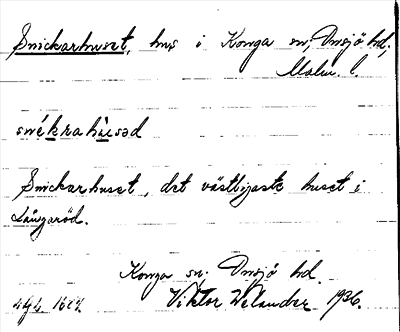 Snickarhuset, hus i Konga sn, Onsjö hd,
Malm. l.
snékrahùsəd
Snickarhuset, det västligaste huset i
Långaröd.
Konga sn. Onsjö hd.
Viktor Welander 1936.